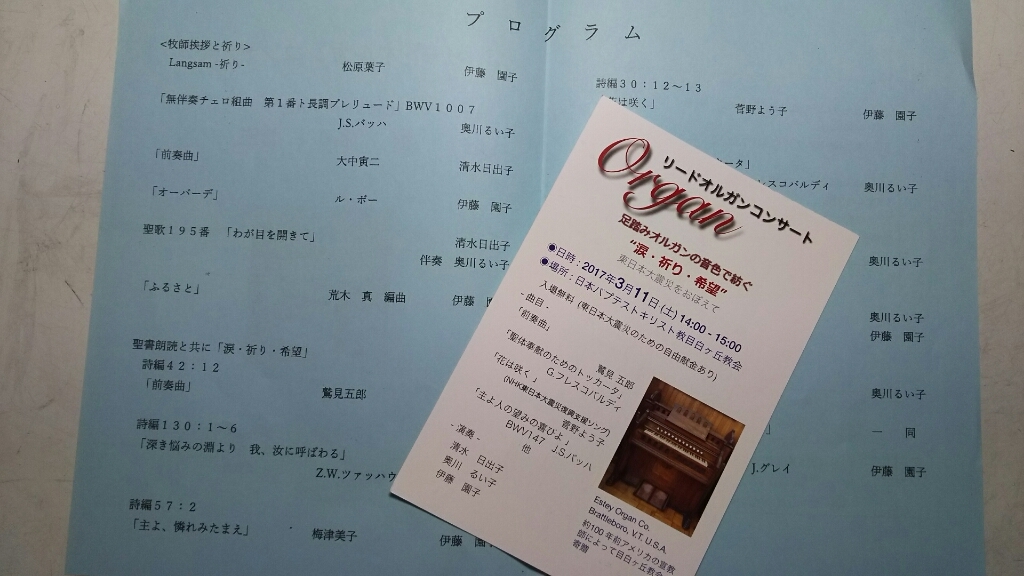 プログラム
<牧師挨拶と祈り>
Langsam -祈り- 松原葉子 伊藤 園子
「無伴奏チェロ組曲 第1番ト長調プレリュード」BWV1007
J.S.バッハ 奥川るい子
「前奏曲」 大中寅二 清水日出子
「オーバーデ」 ル・ボー 伊藤 園子
聖歌195番 「わが目を開きて」 清水日出子
伴奏 奥川るい子
「ふるさと」 荒木 真 編曲 伊藤
聖書朗読と共に「涙・祈り・希望」
詩編42:12
「前奏曲」 鷲見五郎
詩編130:1~6
「深き悩みの淵より 我、汝に呼ばわる」
Z.W.ツァッハウ
詩編57:2
「主よ、憐れみたまえ」 梅津美子 伊藤 園
詩編30:12~13
は咲く」 菅野よう子 伊藤 園子
ータ」
レスコバルディ 奥川るい子
奥川るい子
奥川るい子
伊藤 園子
奥川るい子
」 一 同
J.グレイ 伊藤 園子
リードオルガンコンサート
Organ
足踏みオルガンの音色で紡ぐ
“涙・祈り・希望”
東日本大震災をおぼえて
●日時:2017年3月11日(土)14:00-15:00
●場所:日本バプテストキリスト教目白ヶ丘教会
入場無料 (東日本大震災のための自由献金あり)
- 曲目 -
「前奏曲」 鷲見 五郎
「聖体奉献のためのトッカータ」
G.フレスコバルディ
「花は咲く」
(NHK東日本大震災復興支援ソング)
菅野よう子
「主よ人の望みの喜びよ」
BWV147 J.S.バッハ
他
- 演奏 -
清水 日出子
奥川 るい子
伊藤 園子
Estey Organ Co.
Brattleboro, V.T. U.S.A.
約100年前アメリカの宣教
師によって目白ヶ丘教会
寄贈